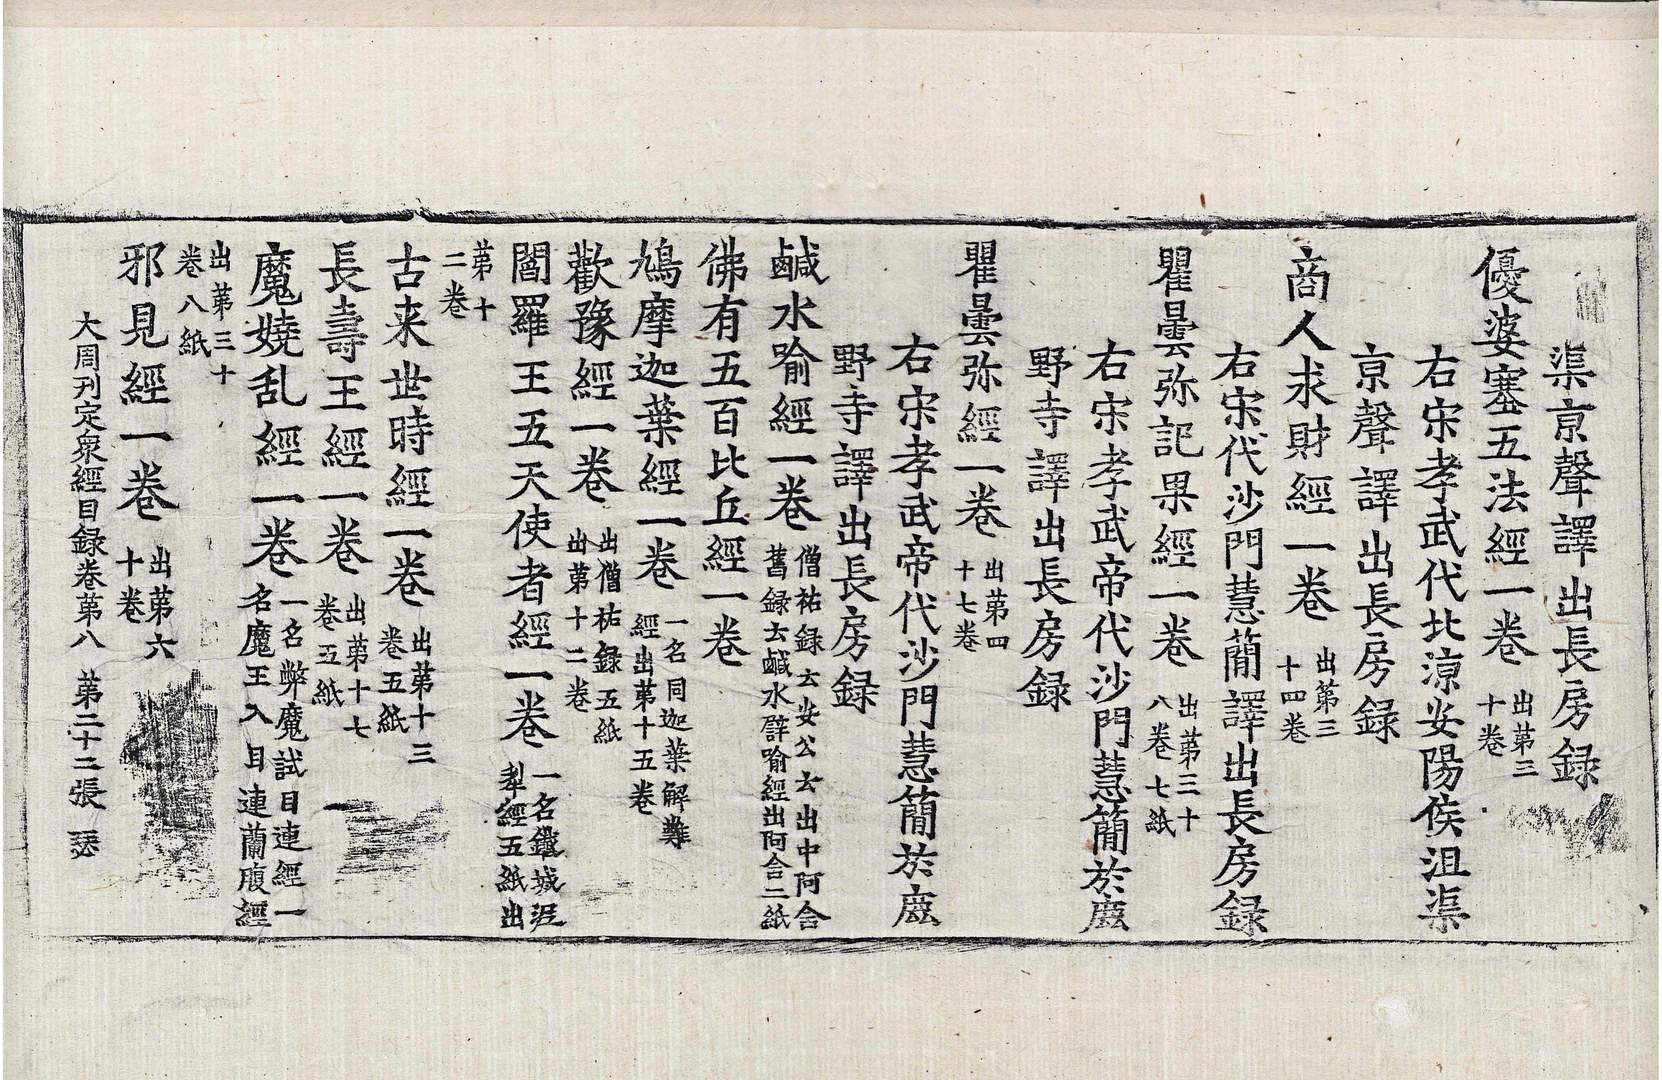 渠京聲譯出長房録
優婆塞五法經一卷出苐三十卷
右宋孝武代北涼安陽侯沮渠
京聲譯出長房録
商人求財經一卷出第三十四卷
右宋代沙門慧蕳譯出長房録
瞿曇弥記果經一卷出苐三十八卷七紙
右宋孝武帝代沙門慧簡於鹿
野寺譯出長房録
瞿曇弥經一卷出苐四十七卷
右宋孝武帝代沙門慧簡於鹿
野寺譯出長房録
鹹水喻經一卷僧祐録云安公云出中阿含舊録云鹹水譬喻經出阿含二紙
佛有五百比丘經一卷
鳩摩迦葉經一卷一名同迦葉解難經出苐十五卷
歡豫經一卷出僧祐録五紙出苐十二卷
閻羅王五天使者經一卷一名鐵城泥犁經五紙出
苐十二卷
古来世時經一卷出苐十三卷五紙
長壽王經一卷出苐十七卷五紙
魔嬈乱經一卷一名弊魔試目連經一名魔王入目連蘭腹經
出苐三十卷八紙
邪見經一卷出第六十卷
大周刊定衆經目録卷第八 第二十二張 瑟